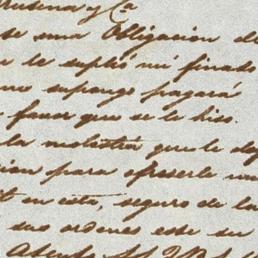 y Cª
se una Obligacion de
le suplió mi finado
no supongo pagará
favor que se le hiso.
la molestia que le
para ofreserle
en esta, seguro de la
sus ordenes este su